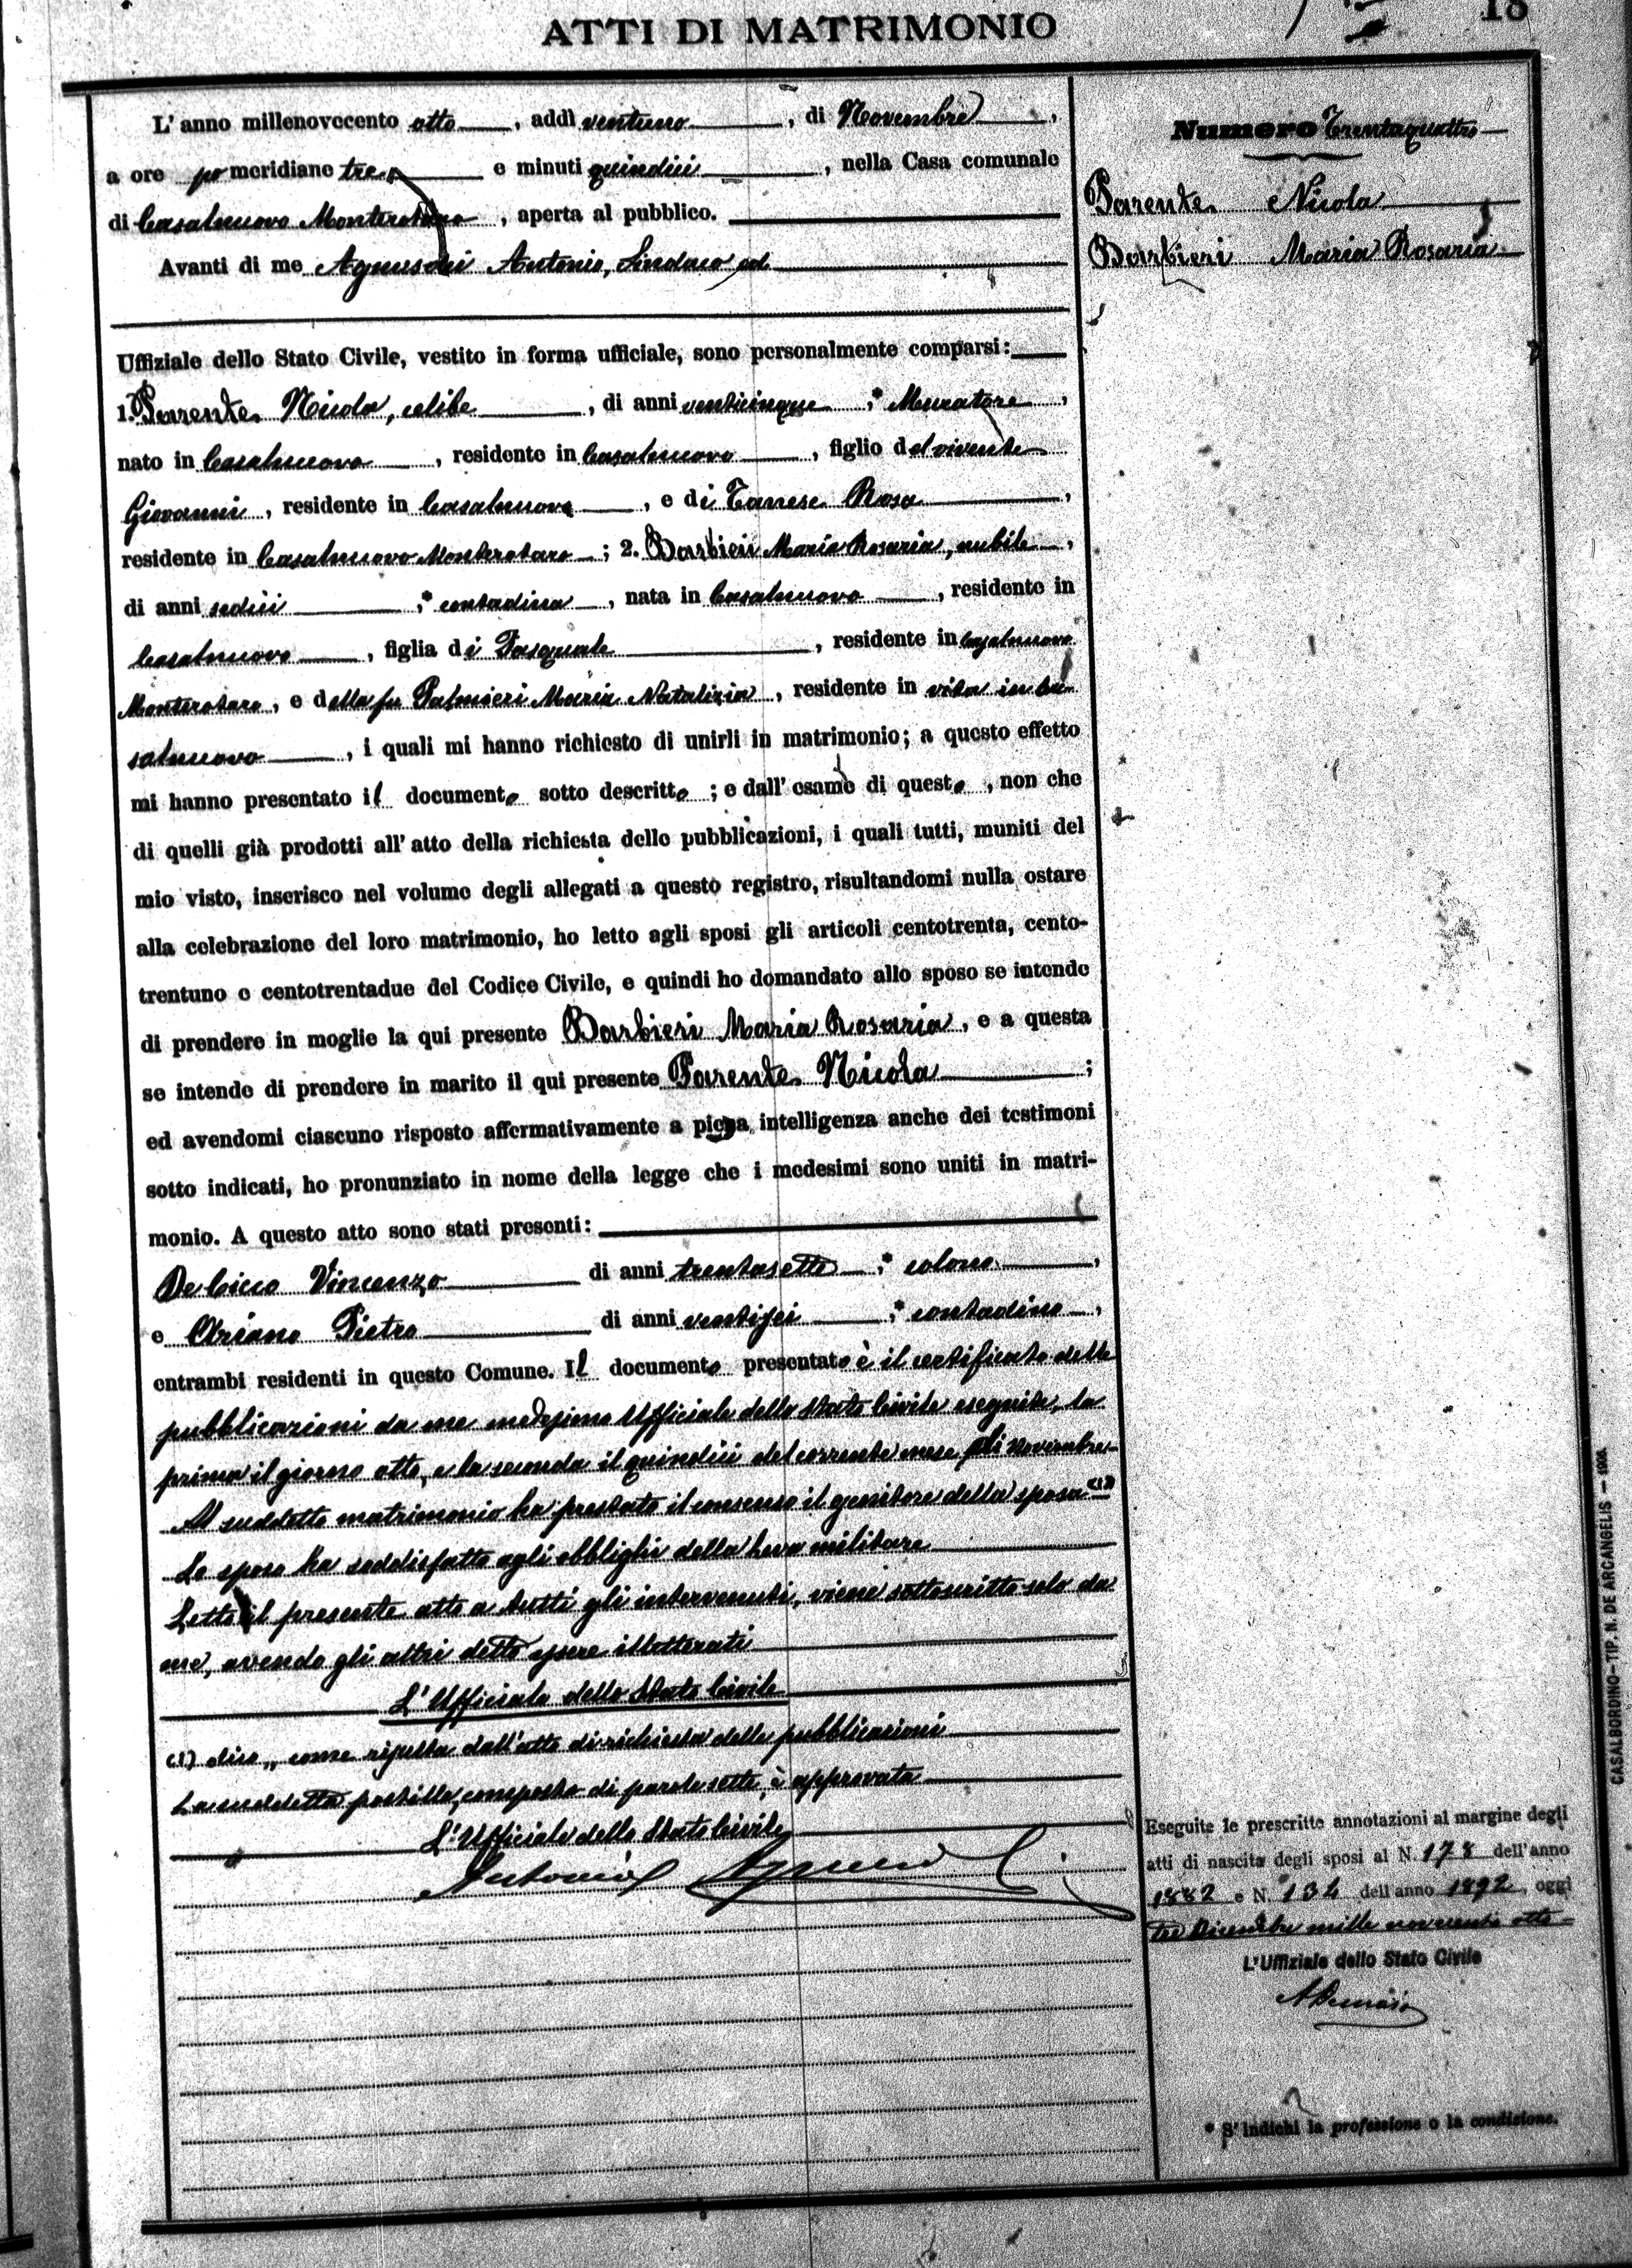 ATTI DI MATRIMONIO
18
L' anno millenovecento otto, addì ventuno, di Novembre,
a ore pomeridiane tre e minuti quindici, nella Casa comunale
di Casalnuovo Monterotaro, aperta al pubblico.
Avanti di me Agnusdei Antonio, Sindaco ed
Uffiziale dello Stato Civile, vestito in forma ufficiale, sono personalmente comparsi:
1. Parente Nicola, celibe, di anni venticinque, * Muratore,
nato in Casalnuovo, residente in Casalnuovo, figlio del vivente
Giovanni, residente in Casalnuovo, e di Tarrese Rosa,
residente in Casalnuovo Monterotaro; 2. Barbieri Maria Rosaria, nubile,
di anni sedici, * contadina, nata in Casalnuovo, residente in
Casalnuovo, figlia di Pasquale, residente in Casalnuovo
Monterotaro, e della fu Palmieri Maria Natalizia, residente in vita in Ca-
salnuovo, i quali mi hanno richiesto di unirli in matrimonio; a questo effetto
mi hanno presentato il documento sotto descritto; e dall' esame di questo, non che
di quelli già prodotti all' atto della richiesta delle pubblicazioni, i quali tutti, muniti del
mio visto, inserisco nel volume degli allegati a questo registro, risultandomi nulla ostare
alla celebrazione del loro matrimonio, ho letto agli sposi gli articoli centotrenta, cento-
trentuno e centotrentadue del Codice Civile, e quindi ho domandato allo sposo se intende
di prendere in moglie la qui presente Barbieri Maria Rosaria, e a questa
se intende di prendere in marito il qui presente Parente Nicola;
ed avendomi ciascuno risposto affermativamente a piena intelligenza anche dei testimoni
sotto indicati, ho pronunziato in nome della legge che i medesimi sono uniti in matri-
monio. A questo atto sono stati presenti:
De Cicco Vincenzo di anni trentasette, * colono,
e Oriano Pietro di anni ventisei, * contadino,
entrambi residenti in questo Comune. Il documento presentato è il certificato delle
pubblicazioni da me medesimo Ufficiale dello Stato Civile eseguite, la
prima il giorno otto, e la seconda il quindici del corrente mese di Novembre
Al suddetto matrimonio ha prestato il consenso il genitore della sposa (1)
Lo sposo ha soddisfatto agli obblighi della leva militare
Letto il presente atto a tutti gli intervenuti, viene sottoscritto solo da
me, avendo gli altri detto essere illetterati
L'Ufficiale dello Stato Civile
(1) dico „ come risulta dall'atto di richiesta delle pubblicazioni
La suddetta postilla, composta di parole sette, è approvata
L'Ufficiale dello Stato Civile
Antonio Agnusdei
Numero Trentaquattro
Parente Nicola
Barbieri Maria Rosaria
Eseguite le prescritte annotazioni al margine degli
atti di nascita degli sposi al N. 178 dell'anno
1882 e N. 134 dell'anno 1892, oggi
tre Dicembre mille novecento otto
L'Uffiziale dello Stato Civile
* S'indichi la professione o la condizione.
CASALBORDINO - TIP. N. DE ARCANGELIS - 1908